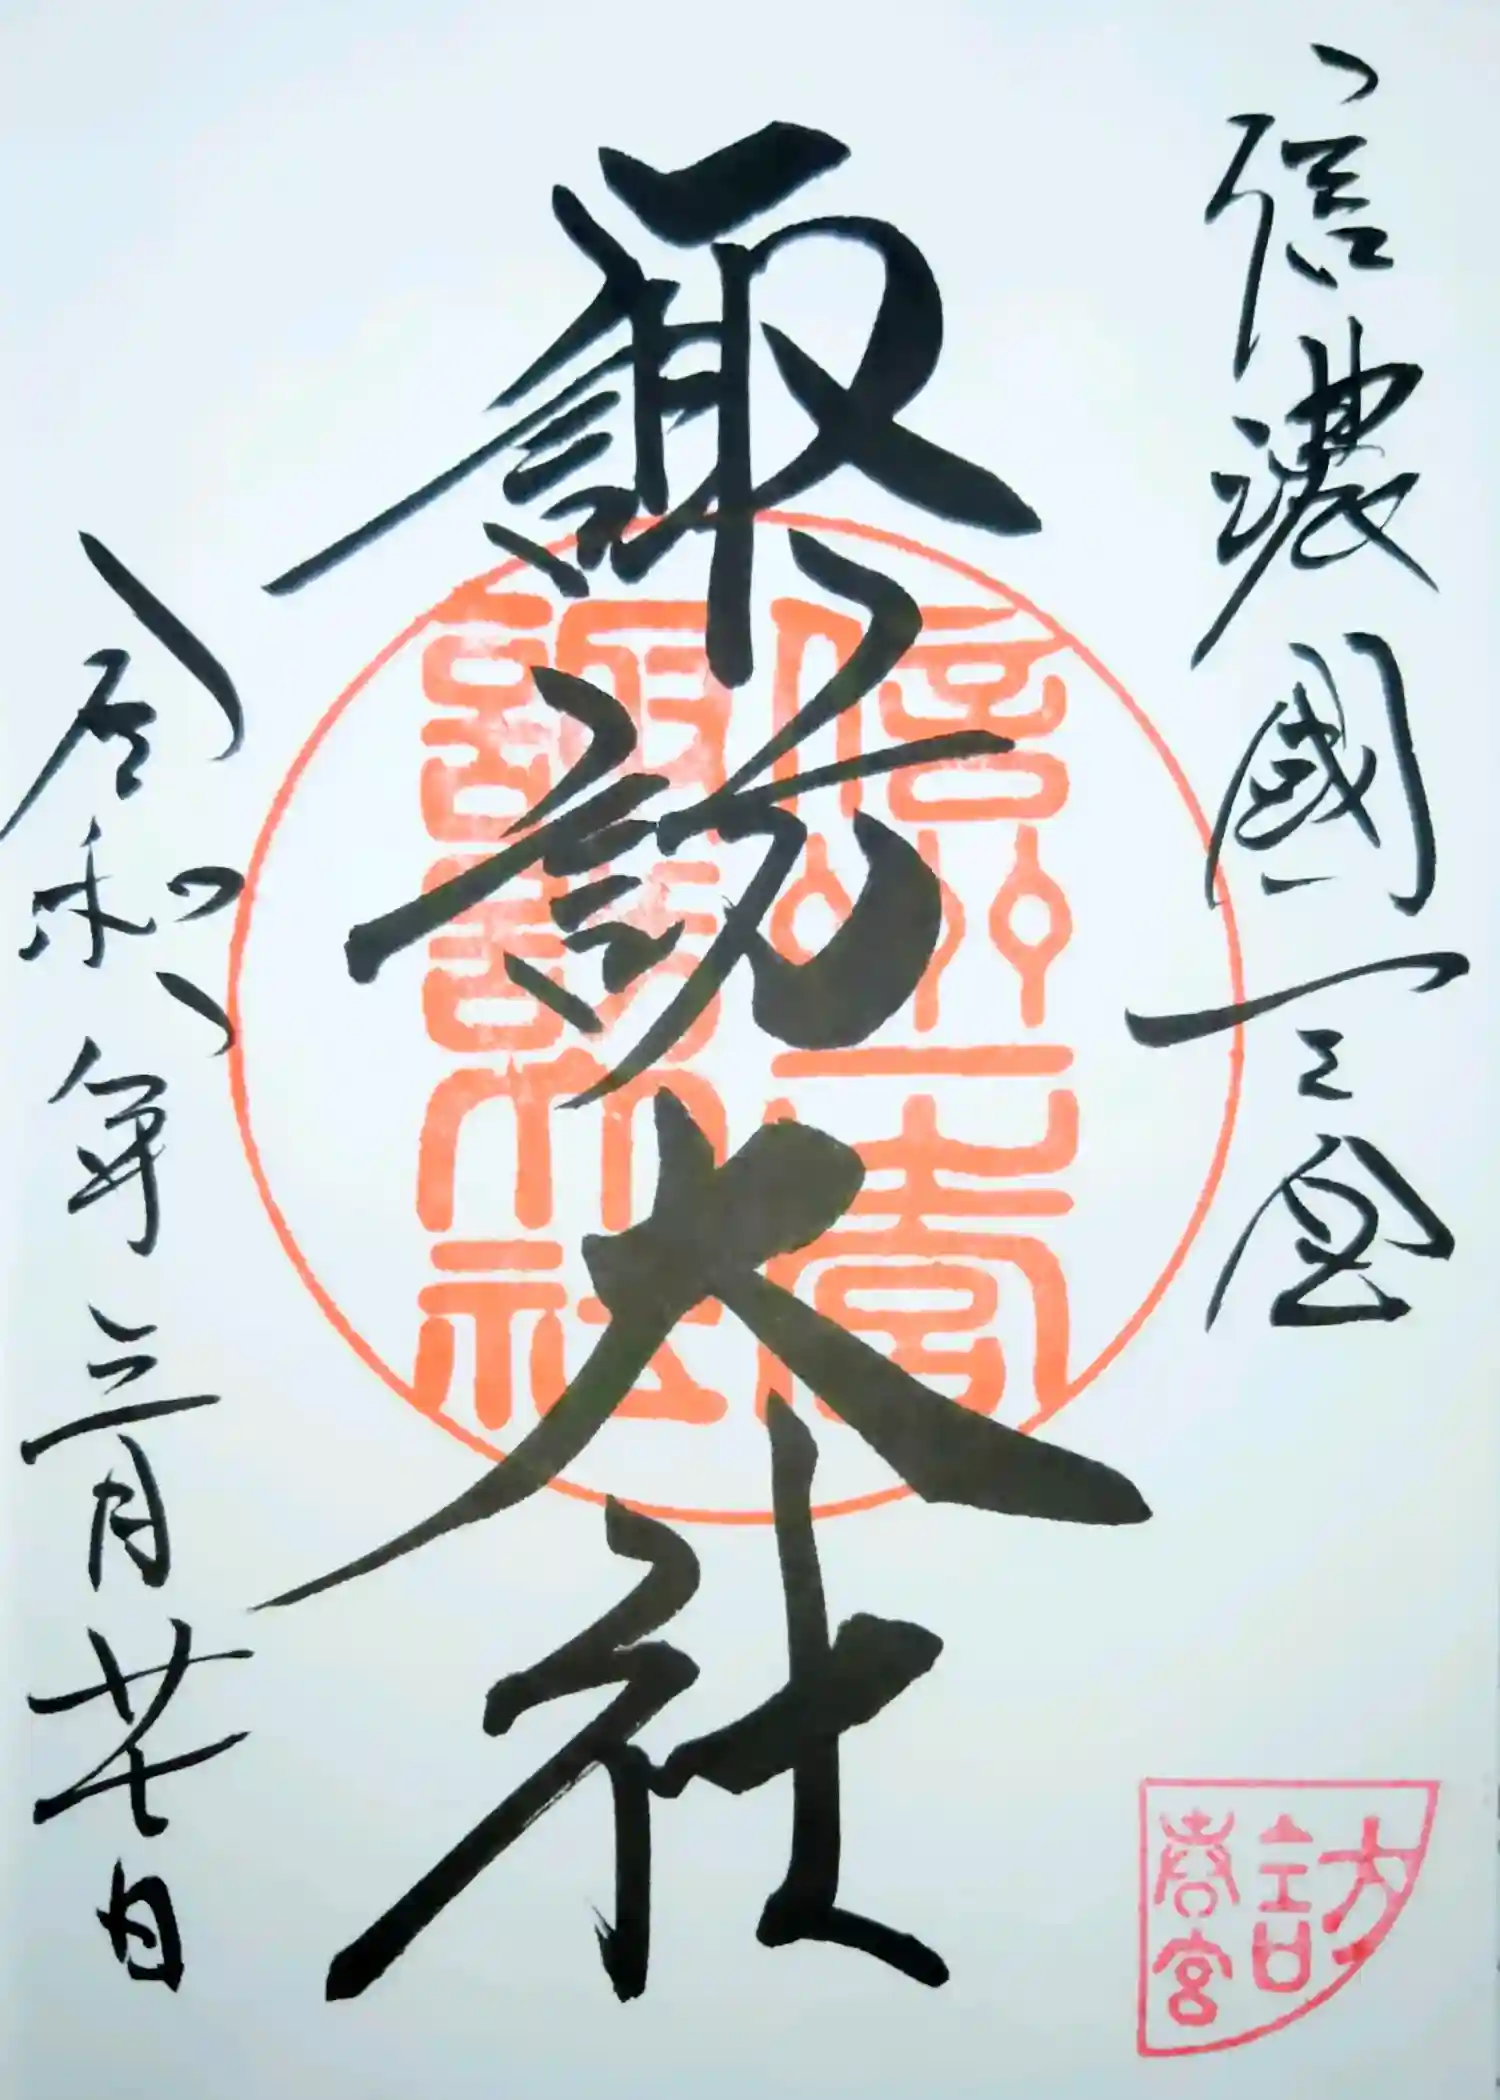 信濃國一之宮
諏訪大社
令和 年三月廿七日
信州一宮
諏訪大社
訪
春宮